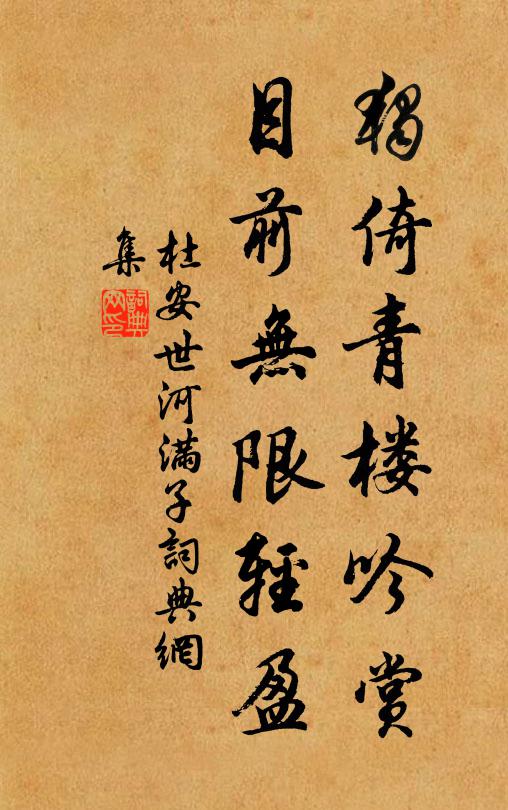 獨倚青楼吟賞
目前無限輕盈
杜安世河满子詞典網
集
詞典
网印